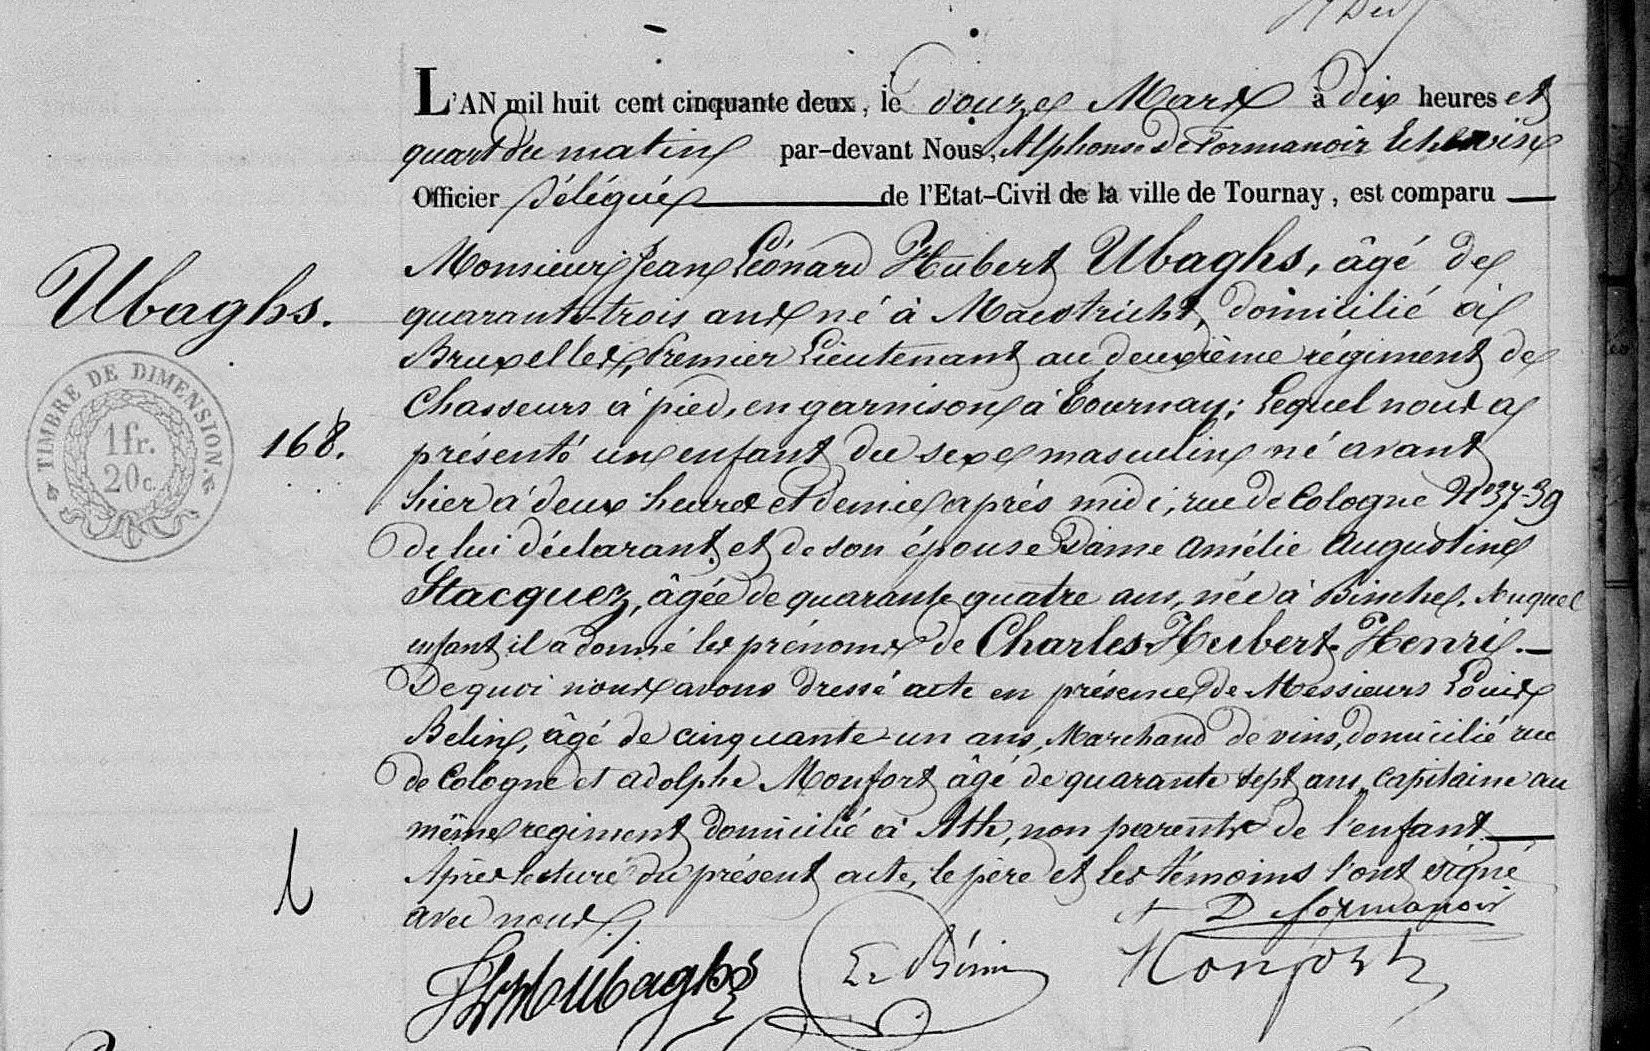 L'AN mil huit cent cinquante deux, le douze Mars à dix heures et
quart du matin par-devant Nous, Alphonse De Formanoir Echevin
Officier Délégué de l'Etat-Civil de la ville de Tournay, est comparu
Monsieur Jean Léonard Hubert Ubaghs, âgé de
Ubaghs.
quarante-trois ans né à Maestricht, domicilié à
Bruxelles, Premier Lieutenant au deuxième régiment de
Chasseurs à pied, en garnison à Tournay; Lequel nous a
TIMBRE DE DIMENSION.
1 fr.
20 c.
168.
présenté un enfant du sexe masculin né avant
hier à deux heures et demie après midi, rue de Cologne N° 37-39
de lui déclarant et de son épouse Dame Amélie Augustine
Stacquez, âgée de quarante quatre ans, née à Binche. Auquel
enfant il a donné les prénoms de Charles-Hubert-Henri.
De quoi nous avons dressé acte en présence de Messieurs Louis
Bélin, âgé de cinquante-un ans, Marchand de vins, domicilié rue
de Cologne et Adolphe Monfort âgé de quarante sept ans, capitaine au
même regiment domicilié à Ath, non parents de l'enfant.
Après lecture du présent acte, le père et les témoins l'ont signé
avec nous.
A DeFormanoir
Ubaghs
Monfort